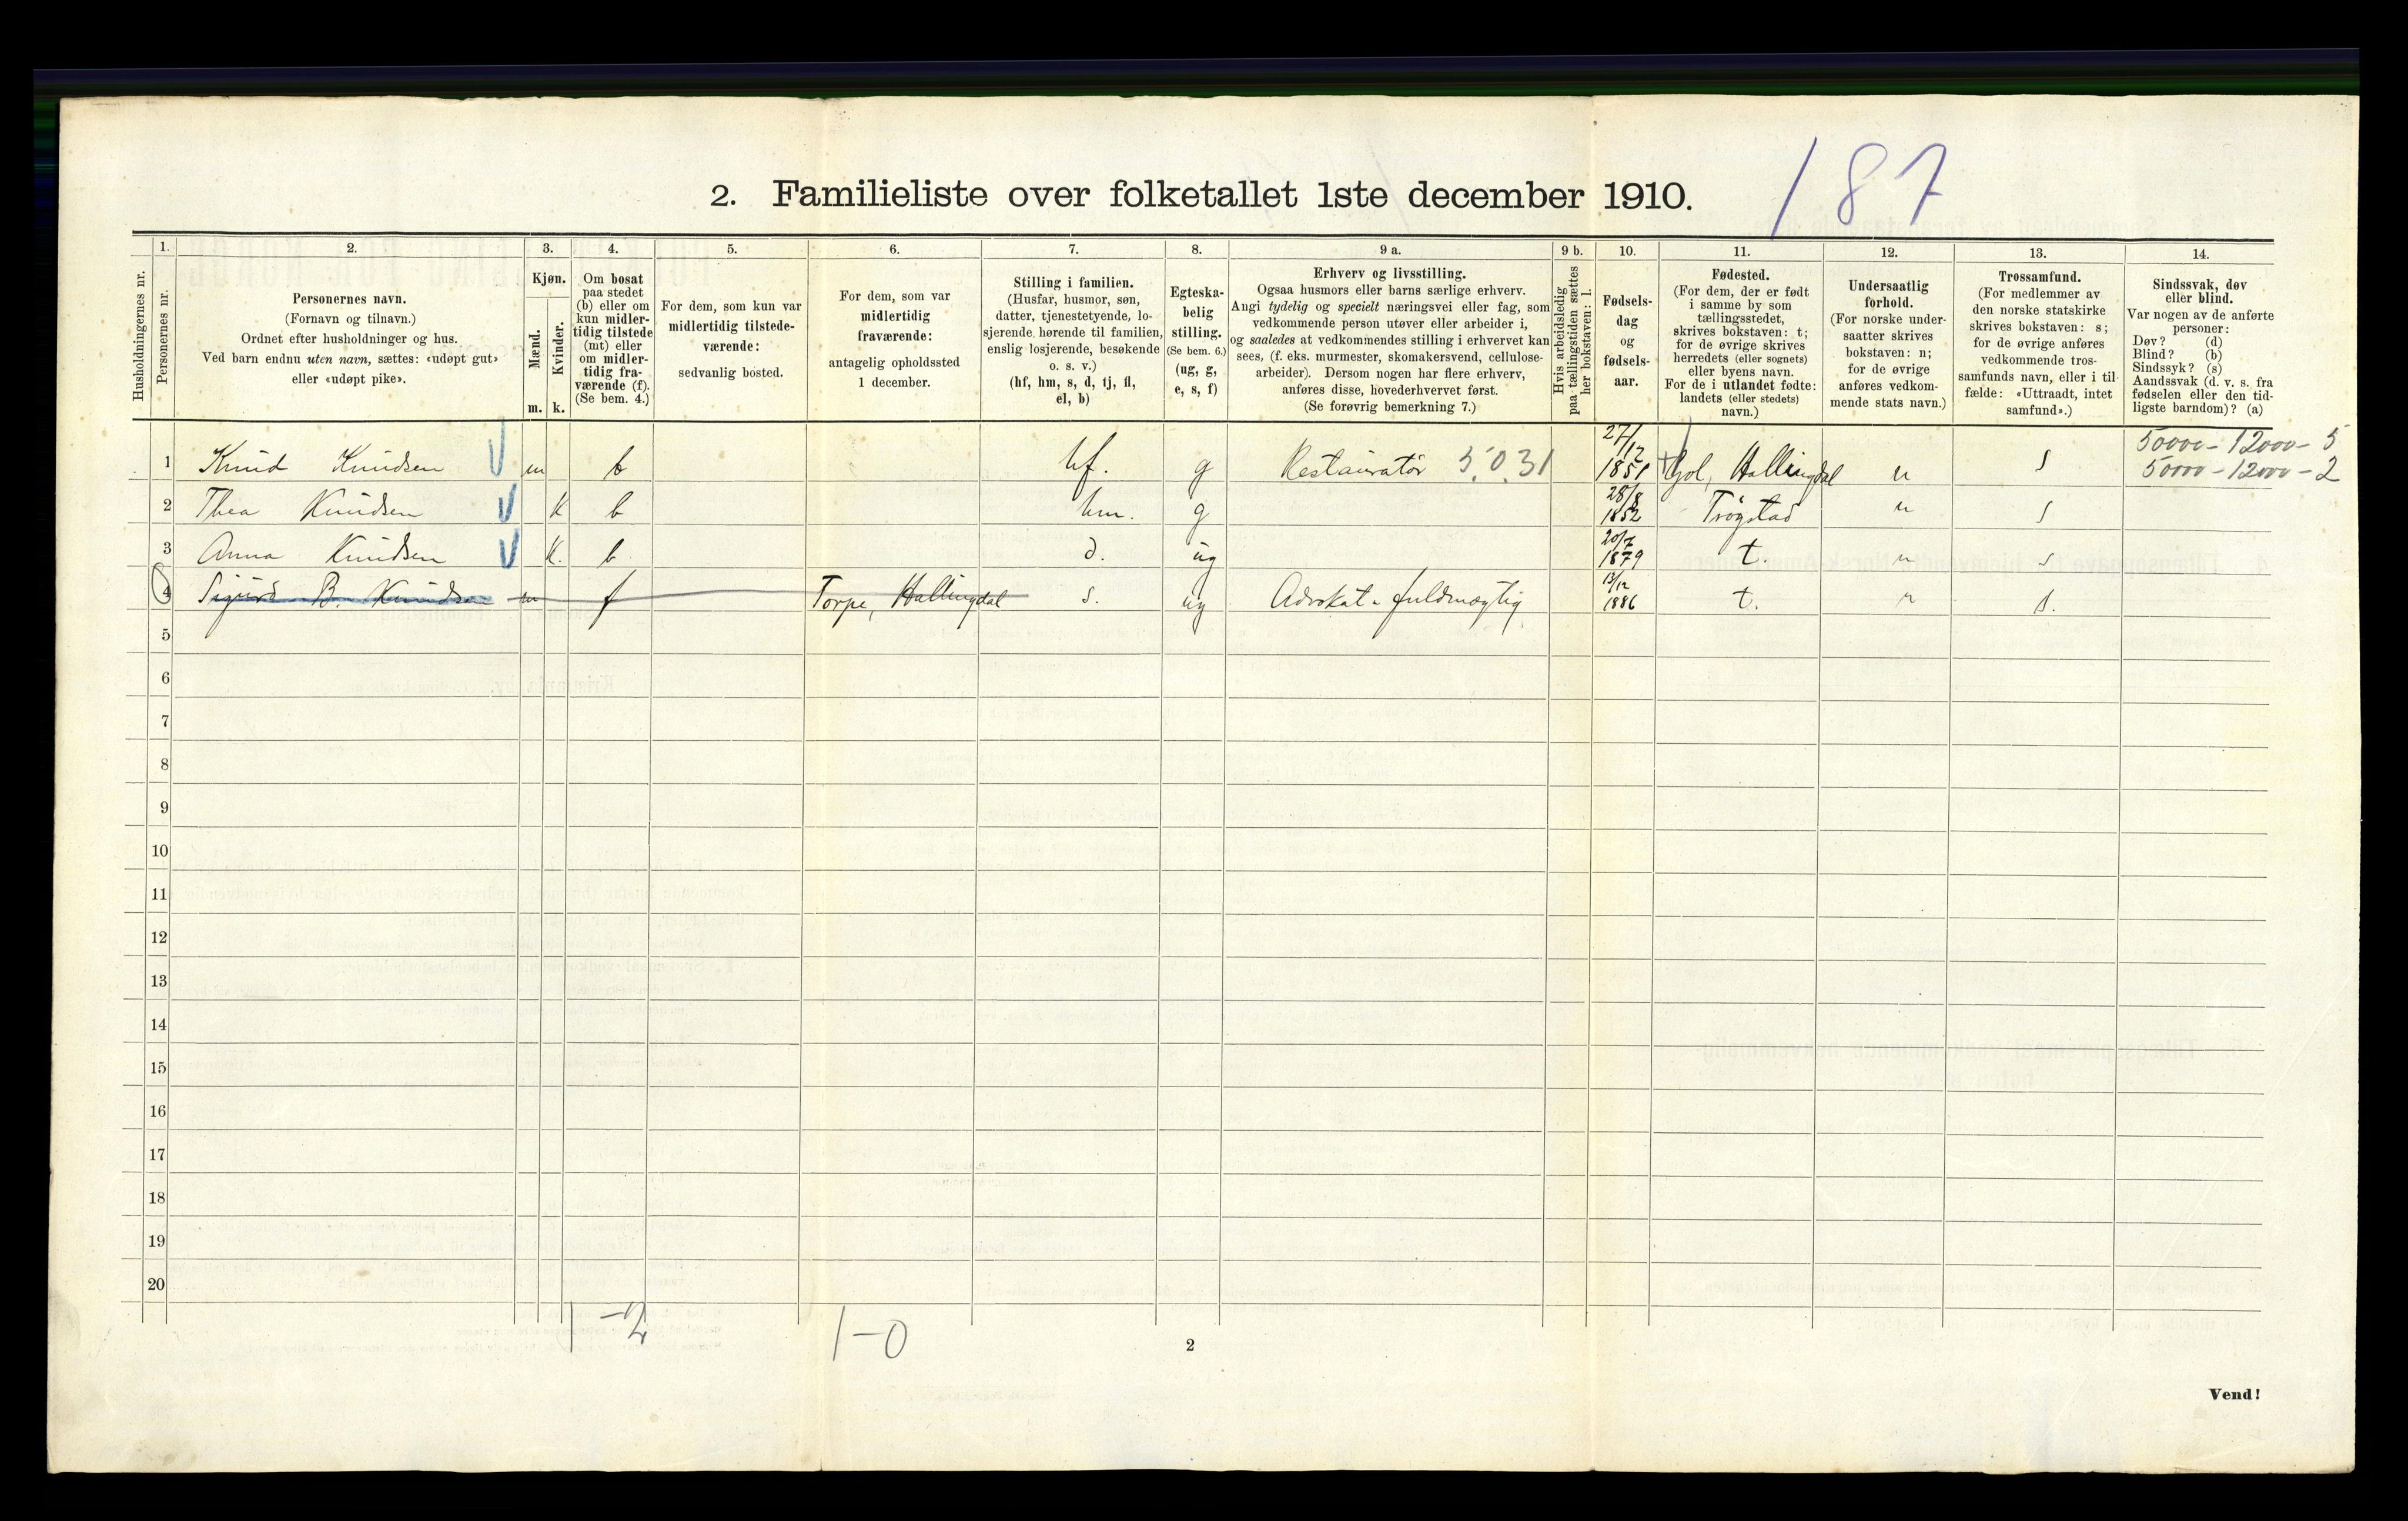 187
2. Familieliste over folketallet 1ste december 1910.
Husholdningernes nr.
1.
Personernes nr.
2.
Personernes navn.
(Fornavn og tilnavn.)
Ordnet efter husholdninger og hus.
Ved barn endnu uten navn, sættes: «udøpt gut»
eller «udøpt pike».
3.
Kjøn.
Mænd.
m.
Kvinder.
k.
4.
Om bosat
paa stedet
(b) eller om
kun midler-
tidig tilstede
(mt) eller
om midler-
tidig fra-
værende (f).
(Se bem. 4.)
5.
For dem, som kun var
midlertidig tilstede-
værende:
sedvanlig bosted.
6.
For dem, som var
midlertidig
fraværende:
antagelig opholdssted
1 december.
7.
Stilling i familien.
(Husfar, husmor, søn,
datter, tjenestetyende, lo-
sjerende hørende til familien,
enslig losjerende, besøkende
o. s. v.)
(hf, hm, s, d, tj, fl,
el, b)
8.
Egteska-
belig
stilling.
(Se bem. 6.)
(ug, g,
e, s, f)
9 a.
Erhverv og livsstilling.
Ogsaa husmors eller barns særlige erhverv.
Angi tydelig og specielt næringsvei eller fag, som
vedkommende person utøver eller arbeider i,
og saaledes at vedkommendes stilling i erhvervet kan
sees, (f. eks. murmester, skomakersvend, cellulose-
arbeider). Dersom nogen har flere erhverv,
anføres disse, hovederhvervet først.
(Se forøvrig bemerkning 7.)
9 b.
Hvis arbeidsledig
paa tællingstiden sættes
her bokstaven: l.
10.
Fødsels-
dag
og
fødsels-
aar.
11.
Fødested.
(For dem, der er født
i samme by som
tællingsstedet,
skrives bokstaven: t;
for de øvrige skrives
herredets (eller sognets)
eller byens navn.
For de i utlandet fødte:
landets (eller stedets)
navn.)
12.
Undersaatlig
forhold.
(For norske under-
saatter skrives
bokstaven: n;
for de øvrige
anføres vedkom-
mende stats navn.)
13.
Trossamfund.
(For medlemmer av
den norske statskirke
skrives bokstaven: s;
for de øvrige anføres
vedkommende tros-
samfunds navn, eller i til-
fælde: «Uttraadt, intet
samfund».)
14.
Sindssvak, døv
eller blind.
Var nogen av de anførte
personer:
Døv? (d)
Blind? (b)
Sindssyk? (s)
Aandssvak (d. v. s. fra
fødselen eller den tid-
ligste barndom)? (a)
1 Knud Knudsen m b hf. g Restauratør 5.0.31 27/12 1851 Gol, Hallingdal n s 50000-12000-5
50000-12000-2
2 Thea Knudsen k b hm. g 28/8 1852 Trøgstad n s
3 Anna Knudsen k. b d. ug 20/7 1879 t. n s
4 Sigurd B. Knudsen m f Torpe, Hallingdal s. ug Advokat-fuldmægtig 13/12 1886 t. n s.
5
6
7
8
9
10
11
12
13
14
15
16
17
18
19
20
1-2
1-0
2
Vend!